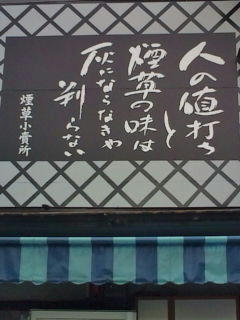 人の値打ち
と
煙草の味は
灰にならなきゃ
判らない
煙草小賣所